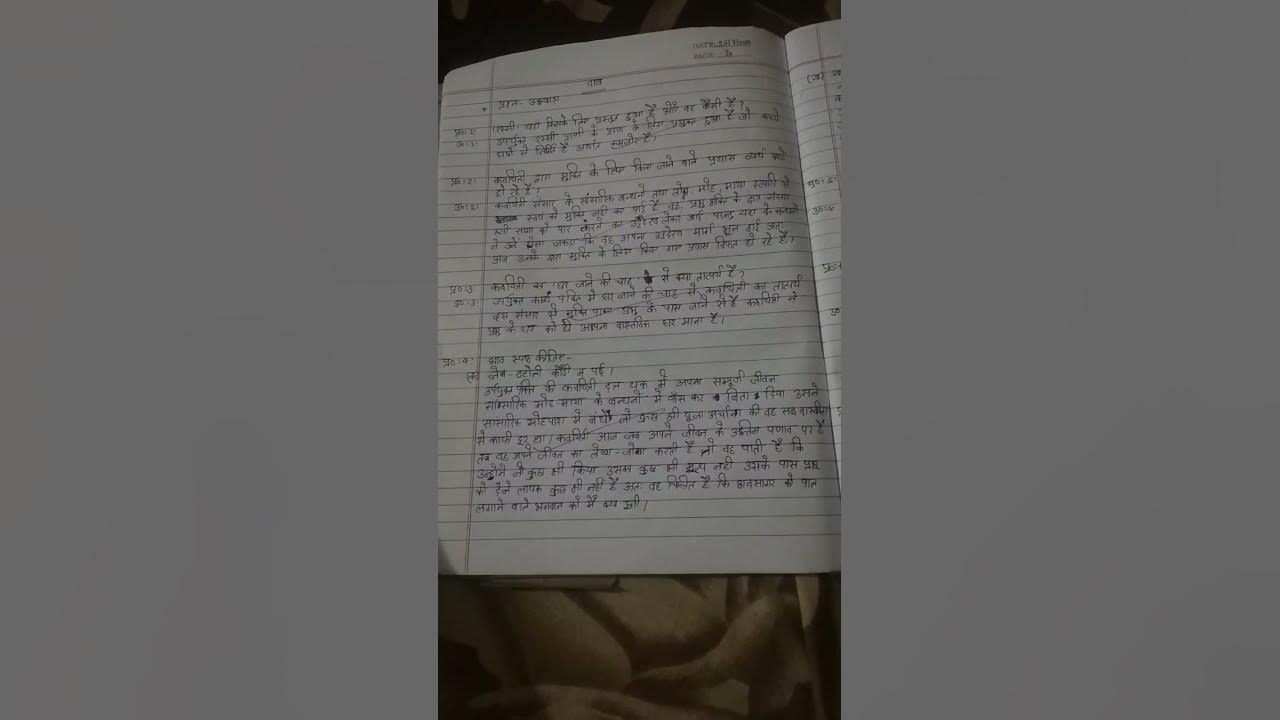 DATE: 27/7/
PAGE:
वाख
* प्रश्न- अभ्यास
प्र०=1: 'रस्सी' यहां किसके लिए प्रयुक्त हुआ है और वह कैसी है?
उ०=1: उपर्युक्त रस्सी प्राणी के प्राण के लिए प्रयुक्त हुआ है जो कच्चे
धागे से निर्मित है अर्थात कमजोर है।
प्र०=2: कवयित्री द्वारा मुक्ति के लिए किए जाने वाले प्रयास व्यर्थ क्यों
हो रहे हैं?
उ०=2: कवयित्री संसार के सांसारिक बन्धनों तथा लोभ, मोह, माया इत्यादि से
स्वयं को मुक्त नहीं कर पाई है वह, प्रभु भक्ति के द्वारा संसार
रूपी सागर को पार करने का उद्देश्य लेकर आई परन्तु यहां के बन्धनों
ने उन्हें ऐसा जकड़ा कि वह अपना उद्देश्य मार्ग भूल गई अतः
अब उनके द्वारा मुक्ति के लिए किए गए प्रयास विफल हो रहे हैं।
प्र०=3: कवयित्री का 'घर जाने की चाह' से क्या तात्पर्य है?
उ०=3: उपर्युक्त काव्य पंक्ति में घर जाने की चाह से कवयित्री का तात्पर्य
इस संसार से मुक्ति पाकर प्रभु के पास जाने से है कवयित्री ने
प्रभु के घर को ही अपना वास्तविक घर माना है।
प्र०=4: भाव स्पष्ट कीजिए-
(क) जेब-टटोली कौड़ी न पाई।
उपर्युक्त पंक्ति की कवयित्री दल चक्र में अपना सम्पूर्ण जीवन
सांसारिक मोह-माया के बन्धनों में फँस कर बिता दिया उसने
सांसारिक मोहपाश में बंधे जो कुछ भी पूजा अर्चना की वह सब वास्तविक
से काफी दूर था। कवयित्री आज जब अपने जीवन के अन्तिम पणाव पर है
तब वह अपने जीवन का लेखा-जोखा करती है तो वह पाती है कि
उन्होंने जो कुछ भी किया उसका कुछ भी मूल्य नहीं उसके पास प्रभु
को देने लायक कुछ भी नहीं है अतः वह चिंतित है कि भवसागर को पार
लगाने वाले भगवान को मैं क्या दूंगी।
(ख)
प्र०=5:
उ०=5: